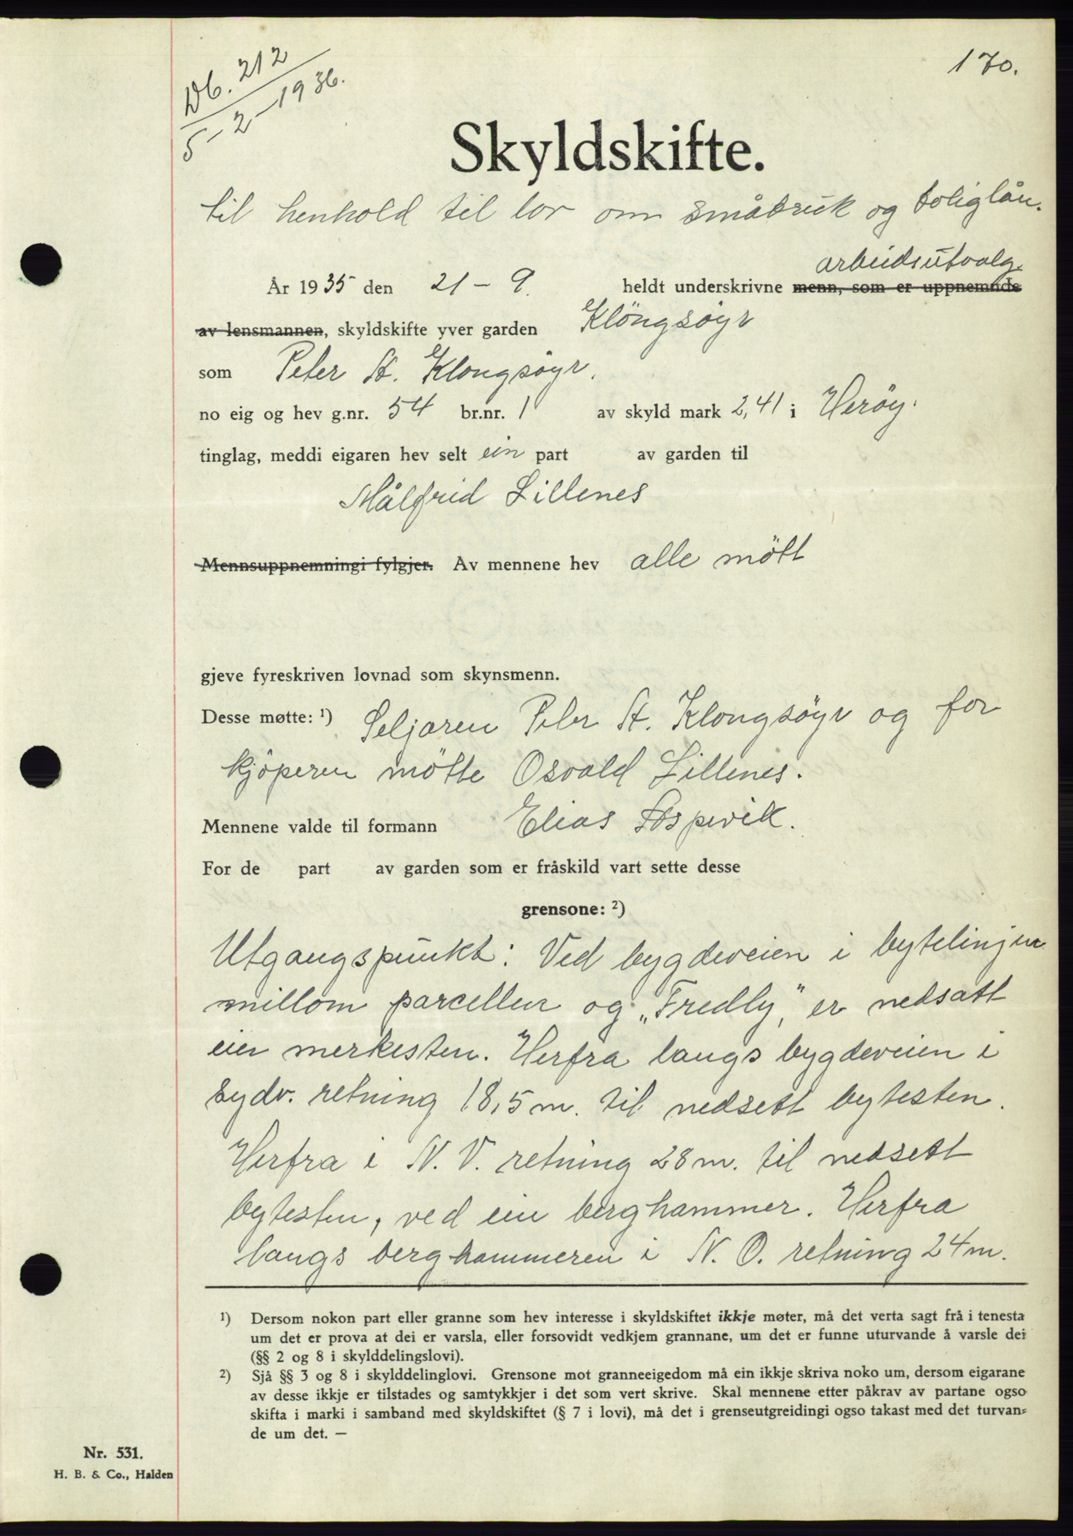 170.
Db. 212
5-2-1936.
Skyldskifte.
til henhold til lov om småbruk og boliglån.
arbeidsutvalg
År 1935 den 21-9. heldt underskrivne menn, som er uppnemnde
av lensmannen, skyldskifte yver garden Klöngsöyr
som Peter A. Klongsöyr.
no eig og hev g.nr. 54 br.nr. 1 av skyld mark 2,41 i Heröy.
tinglag, meddi eigaren hev selt ein part av garden til
Målfrid Lillenes
Mennsuppnemningi fylgjer. Av mennene hev alle mött
gjeve fyreskriven lovnad som skynsmenn.
Desse møtte: ¹) Seljaren Peter A. Klongsöyr og for
kjöperen mötte Osvald Lillenes.
Mennene valde til formann Elias Aspevik.
For de part av garden som er fråskild vart sette desse
grensone: ²)
Utgangspunkt: Ved bygdeveien i bytelinjen
millom parcellen og „Fredly", er nedsatt
ein merkesten. Herfra langs bygdeveien i
sydv. retning 18,5 m. til nedsett bytesten.
Herfra i N. V. retning 28 m. til nedsett
bytesten, ved ein berghammer. Herfra
langs berghammeren i N. O. retning 24 m.
¹) Dersom nokon part eller granne som hev interesse i skyldskiftet ikkje møter, må det verta sagt frå i tenesta
um det er prova at dei er varsla, eller forsovidt vedkjem grannane, um det er funne uturvande å varsle dei
(§§ 2 og 8 i skylddelingslovi).
²) Sjå §§ 3 og 8 i skylddelinglovi. Grensone mot granneeigedom må ein ikkje skriva noko um, dersom eigarane
av desse ikkje er tilstades og samtykkjer i det som vert skrive. Skal mennene etter påkrav av partane ogso
skifta i marki i samband med skyldskiftet (§ 7 i lovi), må det i grenseutgreidingi ogso takast med det turvan=
de um det. —
Nr. 531.
H. B. & Co., Halden